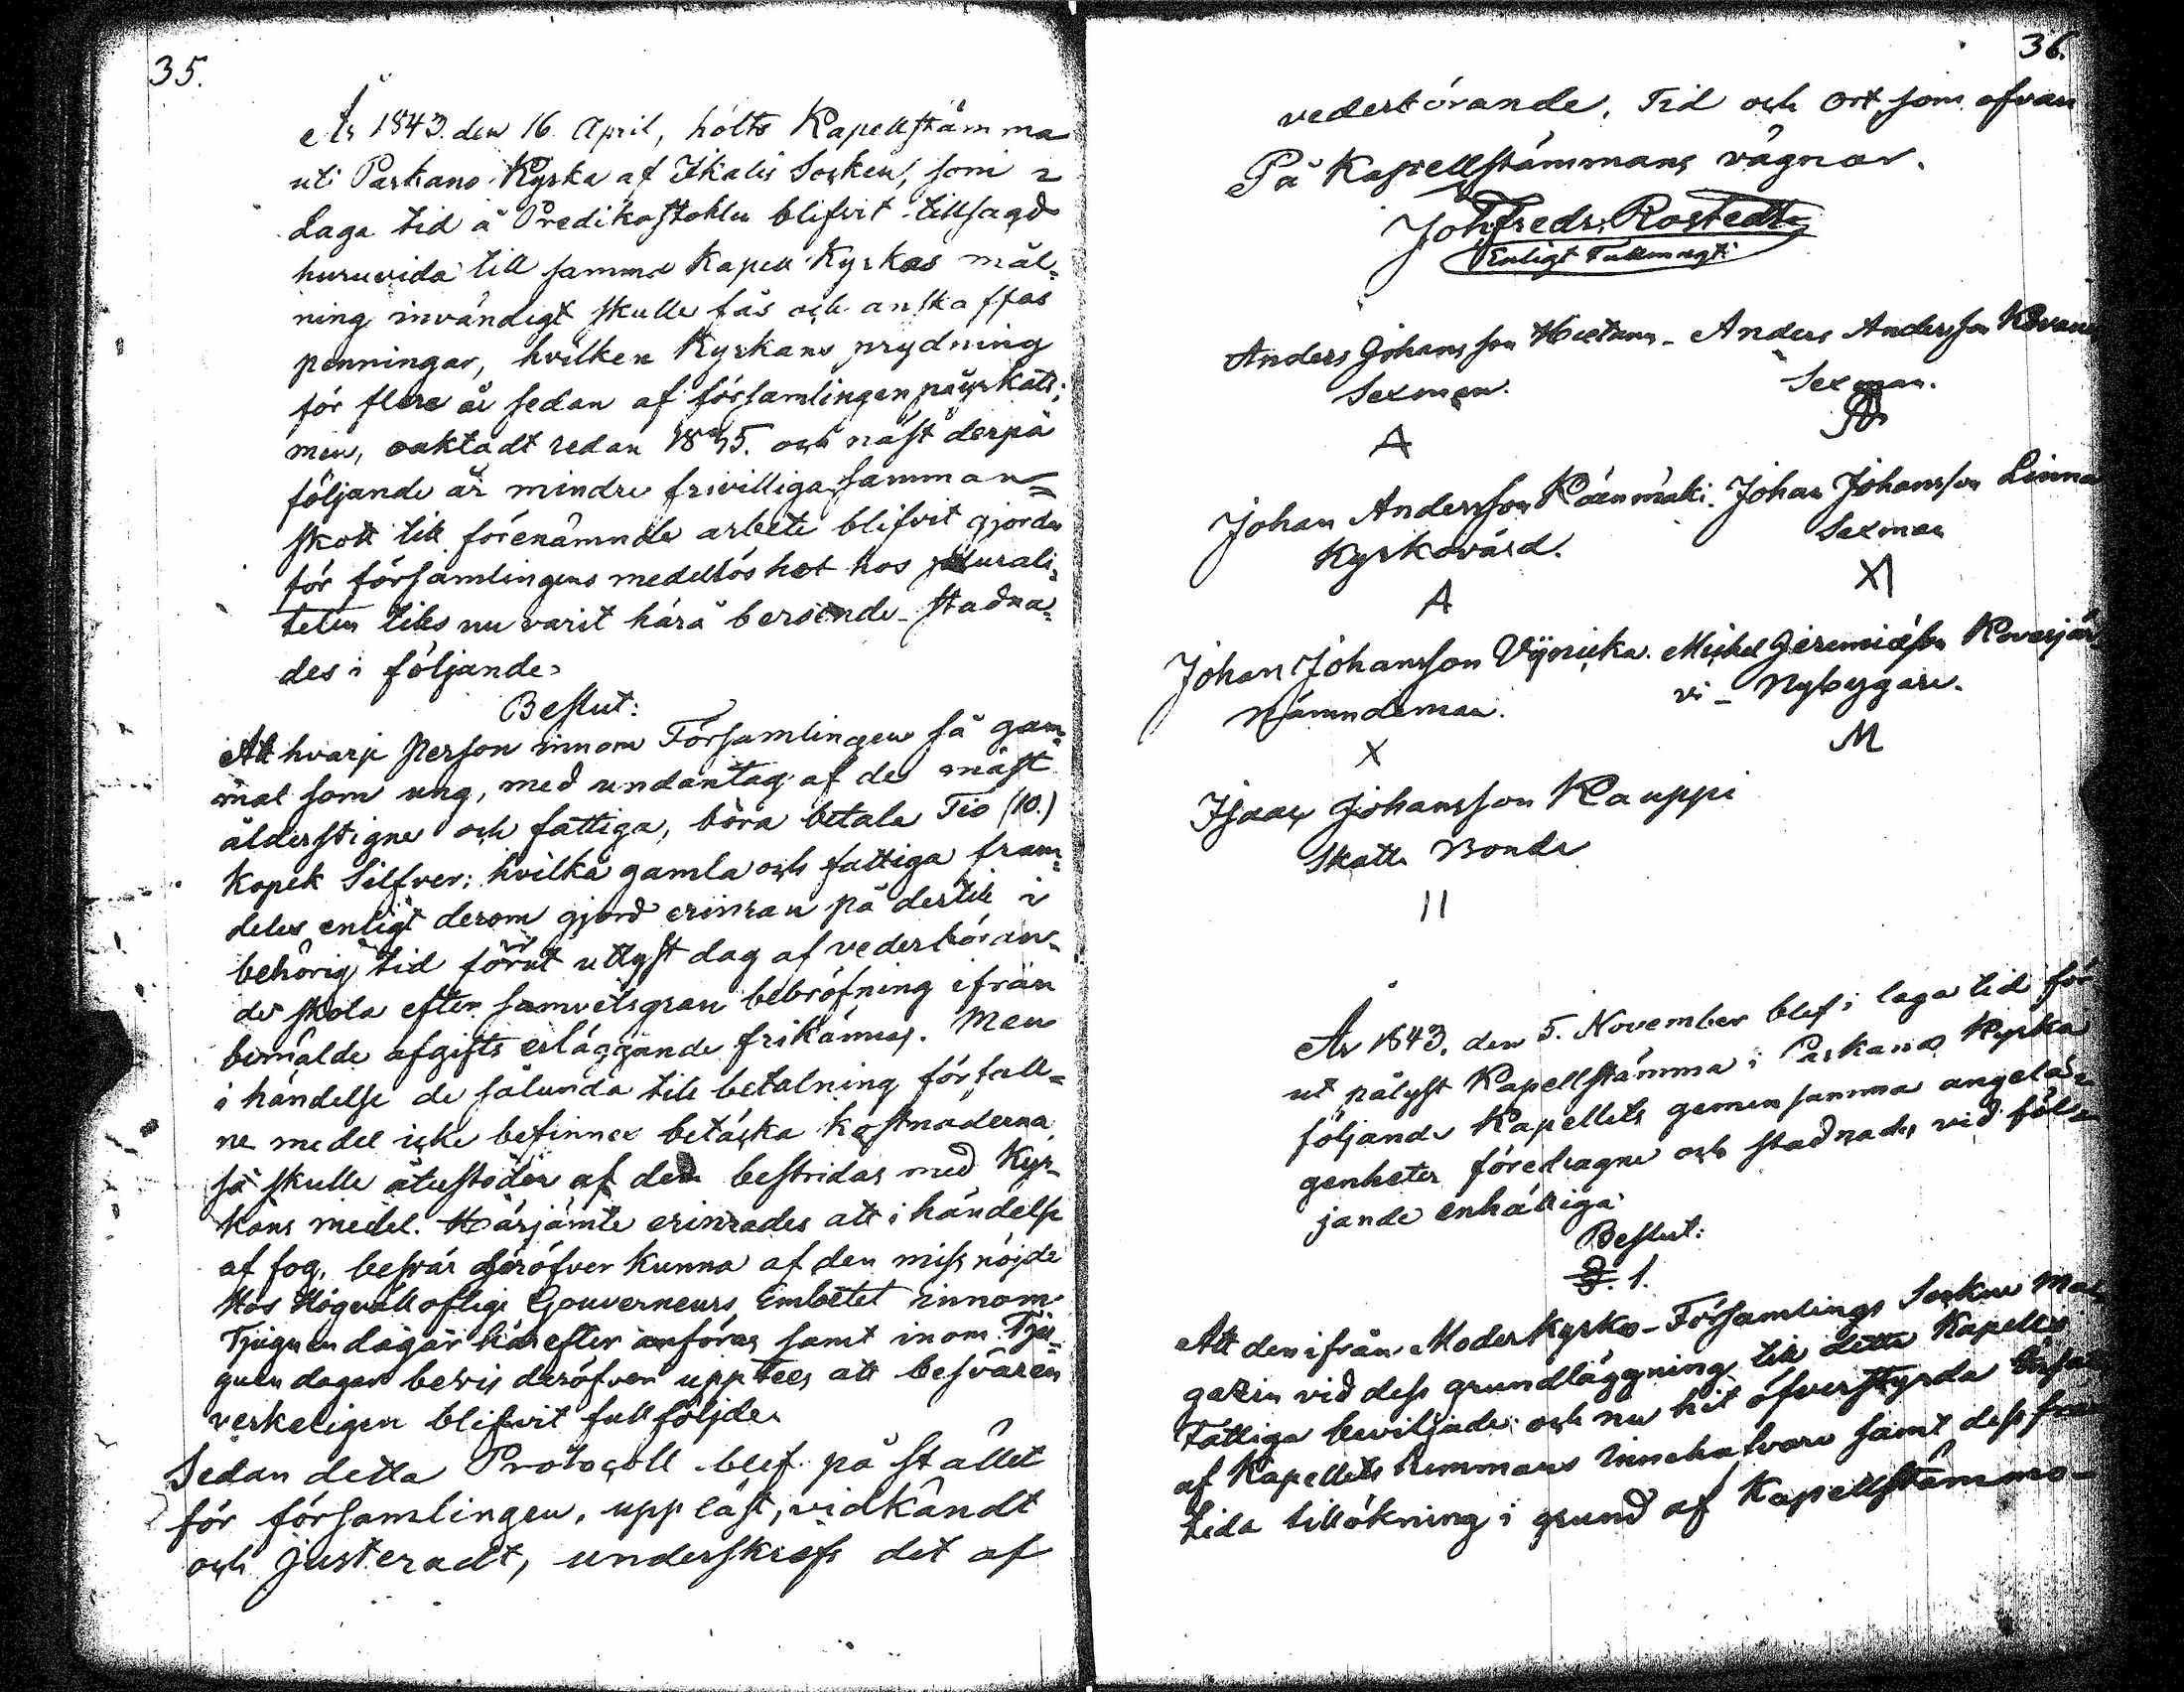 35.
År 1843. den 16 April, hölts Kapellstämma
uti Parkano Kyrka af Ikalis Socken, som i
laga tid å Predikostohln blifvit tillsagd
huruvida till samma Kapell Kyrkas mål=
ning invändigt skulle fås och anskaffas
penningar, hvilken Kyrkans prydning
för flere år sedan af församlingen påyrkats;
men, oaktadt redan 1835. och näst derpå
följande år mindre frivilliga samman=
skott till förenämnde arbete blifvit gjorde
för församlingens medellöshet hos plurali=
teten tills nu varit härå beroende stadna=
des i följande
Beslut:
Att hvarje Person innom Församlingen så gam=
mal som ung, med undantag af de mäst
ålderstigne och fattiga, böra betala Tio (10.)
Kopek Silfver; hvilka gamla och fattiga fram=
deles enligt derom gjord erinran på dertill i
behörig tid förut utlyst dag af vederböran=
de skola efter samvetsgran bepröfning ifrån
bemälde afgifts erläggande frikännas. Men
i händelse de sålunda till betalning förfall=
ne medel icke befinnes betäcka kostnaderna,
så skulle återstoden af dem bestridas med Kyr=
kans medel. Härjämte erinrades att i händelse
af fog, besvär häröfver kunna af den missnöjde
Hos Högvällofliga Gouverneurs Embetet innom
Tjuguen dagar härefter anföras samt inom Tju=
guen dagar bevis deröfver upptees att besvären
verkeligen blifvit fullföljde.
Sedan detta Protocoll blef på stället
för församlingen, uppläst, vidkändt
och justeradt, underskrefs det af
36.
vederbörande. Tid och ort som ofvan
På Kapellstämmans vägnar.
Joh. Fredr. Rostedt
Enligt Fullmagt
Anders Johansson Hietanen Anders Andersson
Sexman. Sexman.
A
Johan Andersson Käenmäki. Johan Johansson Linna
Kyrkovärd. Sexman
A XI
Johan Johansson Vuorikka. Michel Jeremiæson Kovesjär
Nämndeman. vi Nybyggare.
X M
Isaac Johansson Kauppi
Skatte Bonde
II
År 1843. den 5. November blef i laga tid för
ut pålyst Kapellstämma i Parkano Kyrka
följande Kapellets gemensamma angelä=
genheter föredragne och stadnades vid föl=
jande enhälliga
Beslut:
§. 1.
Att den ifrån Moderkyrko-Församlings Socken Ma
gazin vid dess grundläggning till detta Kapells
Fattiga beviljade och nu hit öfverstyrda
af Kapellets Rummares innehafvare samt dess fram
tida tillökning i grund af Kapellstämmo-